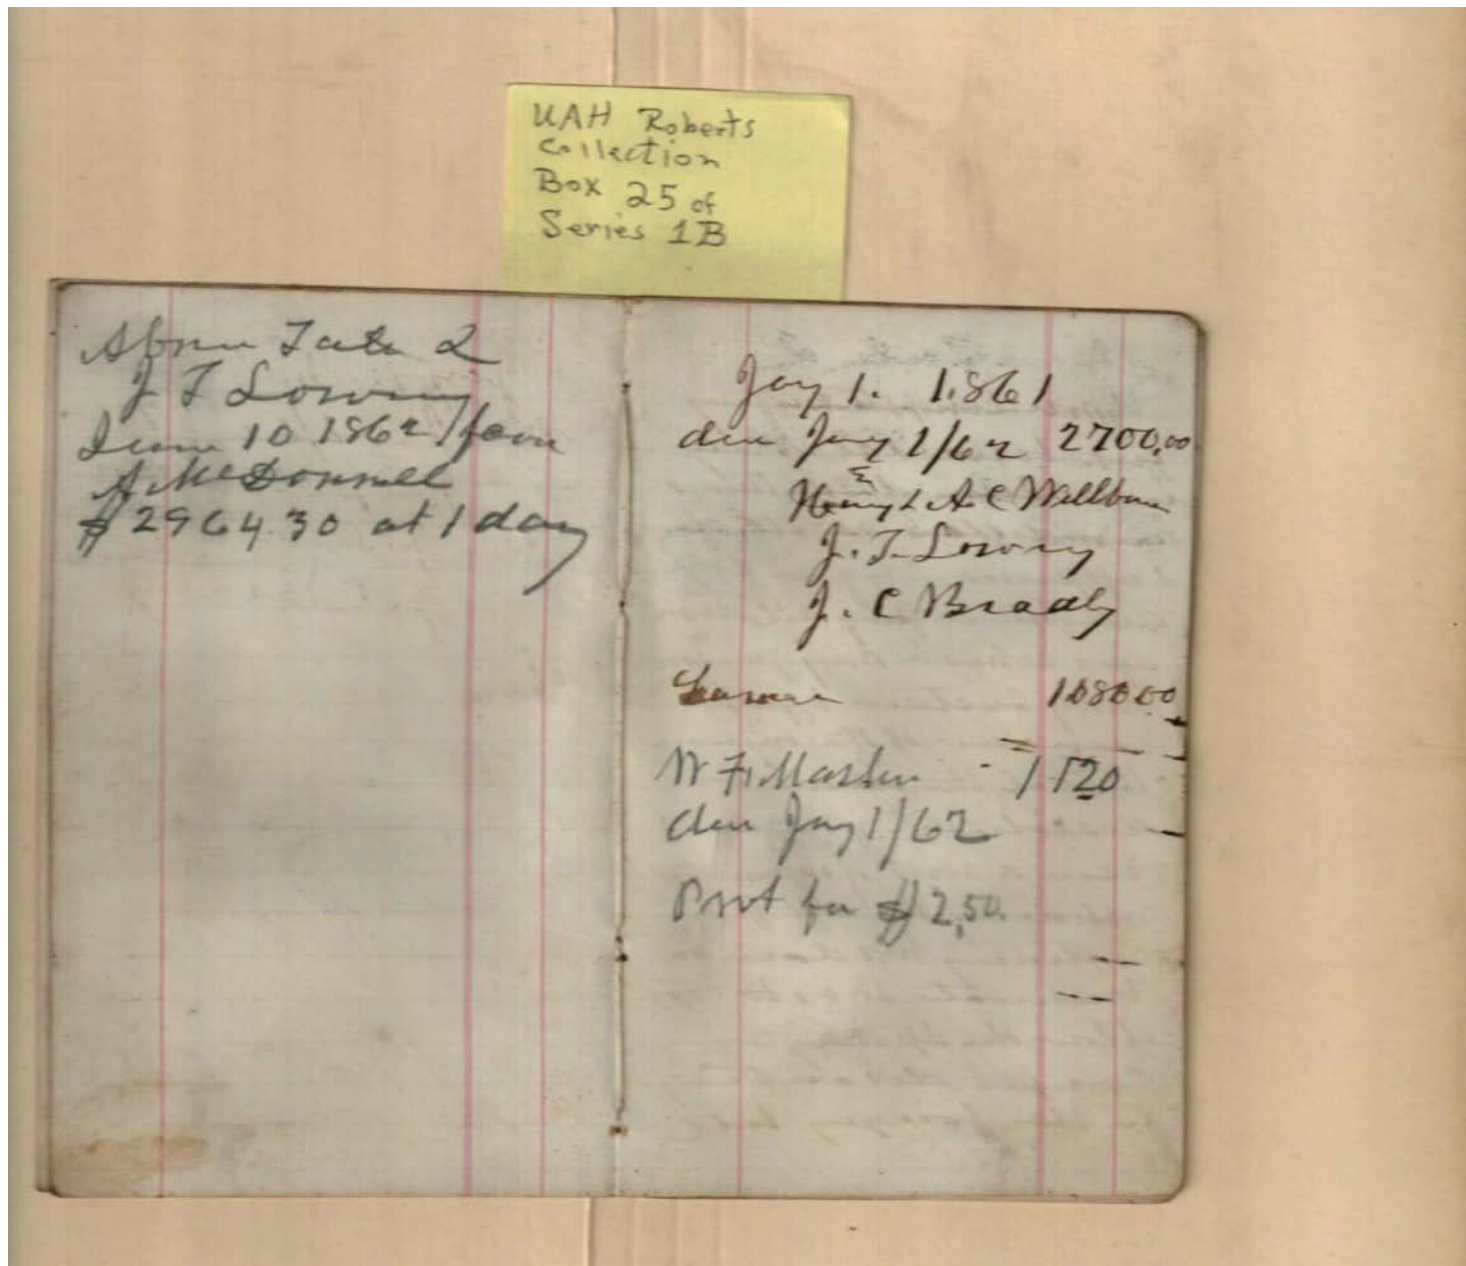 UAH Roberts
Collection
Box 25 of
Series 1B
Abram Tate &
J T Lowry
June 10 1862 / favr
A McDonnell
$2964.30 at 1 day
Jany 1. 1861
due Jany 1/62 2700,00
A C Wellburn
J. T. Lowry
J. C Bradly
1080.00
W F Masten - 1520
due Jany 1/62
for $2,50.